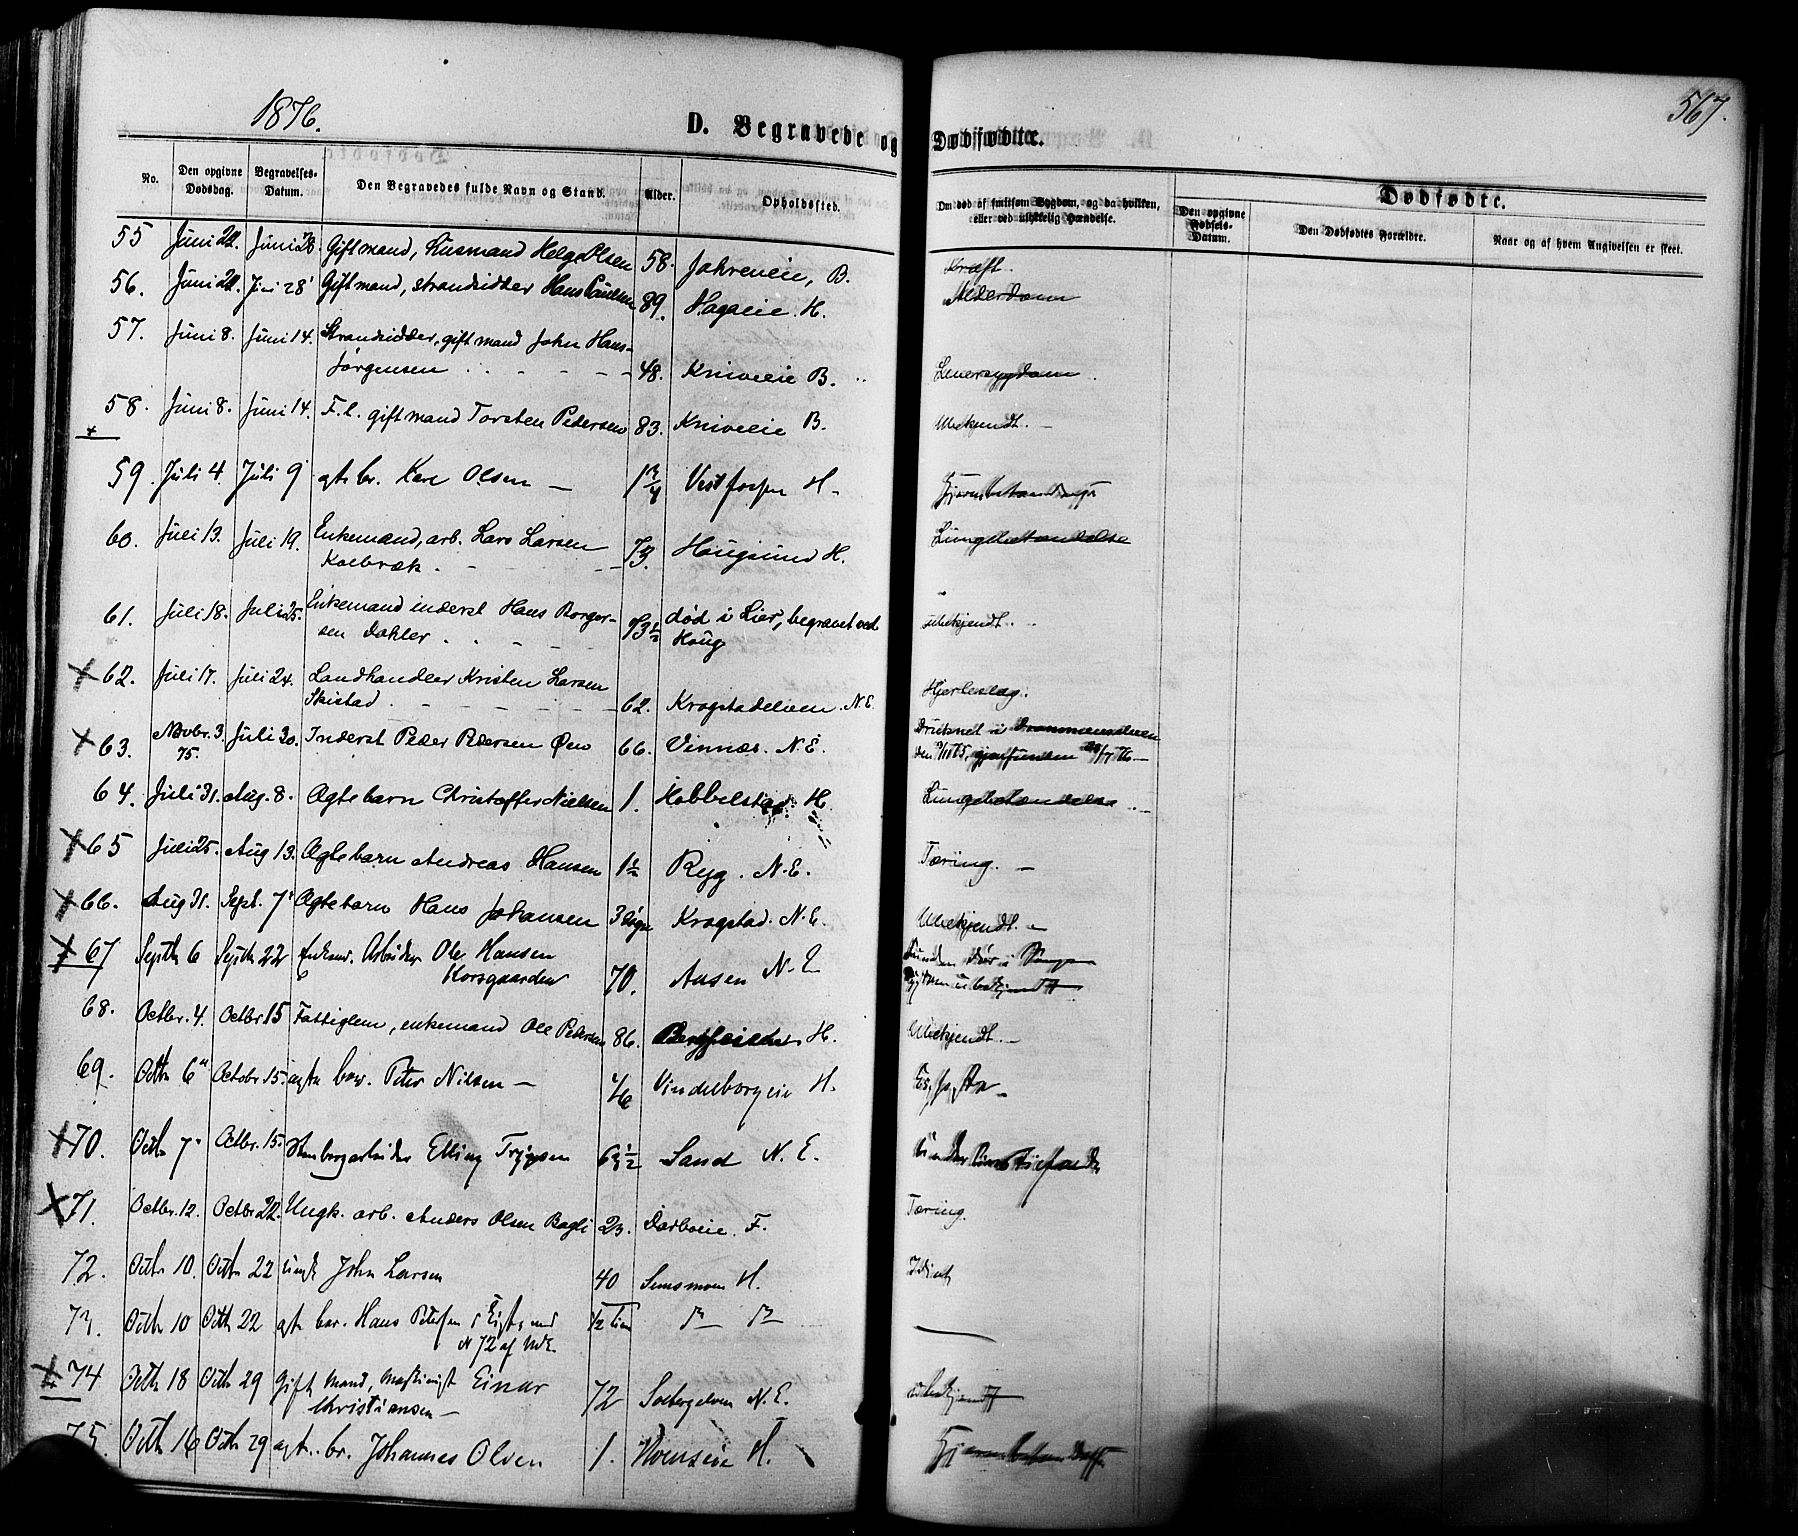 1876.
567.
D. Begravede og Dødfødte.
No.
Den opgivne Dødsdag.
Begravelses-Datum.
Den Begravedes fulde Navn og Stand.
Alder.
Opholdssted.
Om død af smitsom Sygdom, og da hvilken, eller ved ulykkelig Hændelse.
Dødfødte.
Den opgivne Fødsels-Datum.
Den Dødfødtes Forældre.
Naar og af hvem Angivelsen er skeet.
55 Juni 22. Juni 28. Gift mand, Husmand Helge Olsen 58. Jahreneie, B. Kræft.
56. Juni 22. Juni 28 Gift mand, strandsidder Hans Paulsen 89. Hagaeie. H. Alderdom
57. Juni 8. Juni 14. Strandsidder, gift mand John Hans-
Jørgensen 48. Kniveeie B. Leversygdom
58. Juni 8. Juni 14. F. l. gift mand Torsten Pedersen 83. Kniveeie B. Ubekjendt.
59. Juli 4. Juli 9 gte br. Kare Olsen 1 3/4 Vestfossen H.
60. Juli 13. Juli 19. Enkemand, arb. Lars Larsen
Kolbræk. 73. Hougsund H. Lungebetændelse
61. Juli 18. Juli 25. Enkemand inderst Hans Borger-
sen Dahler 73 1/2 død i Lier, begravet ved
Houg ubekjendt.
62. Juli 17. Juli 24. Landhandler Kristen Larsen
Skistad 62. Krogstadelven. N.E. Hjerteslag.
63. Novbr. 3. 75. Juli 30. Inderst Peder Pedersen Øen 66. Vinnæs. N.E. Druknet i Drammenselven
den 3/11 75, gjenfunden 20/7 76
64. Juli 31. Aug. 8. Ægtebarn Christoffer Nielsen 1. Hobbelstad. H. Lungebetændelse
65 Juli 25. Aug 13. Ægtebarn Andreas Hansen 1 1/2 Ryg. N.E. Tæring.
66. Aug 31. Sept. 7 Ægtebarn Hans Johansen 3 døgn Krogstad. N.E. Ubekjendt.
67 Septb 6 Septb 22 Enkem. Arbeider Ole Hansen
Korsgaarden 70. Aasen N.E.
68. Octbr. 4. Octbr 15 Fattiglem, enkemand Ole Pedersen 86. H. Ubekjendt.
69. Octb 6 Octobr 15. ægte barn Peter Nilsen Vindelborgeie H.
70. Octb 7 Octbr. 15. Elling 69 1/2 Sand N.E.
71. Octbr. 12. Octbr 22. Ungk. arb. Anders Olsen Bagli 23. Darboeie. F. Tæring.
72. Octb 10. Octb 22 ungk John Larsen 40 Semsmoen H. Idiot
73. Octb 10 Octb 22 gte bar. Hans
N 72 1/2 Time
74 Octb 18 Octb 29 gift Mand, Maskinist Einar
Christiansen 72 Solbergelven N.E. ubekjendt
75. Octb 16 Octb 29 ægt. br. Johannes Olsen 1. H.